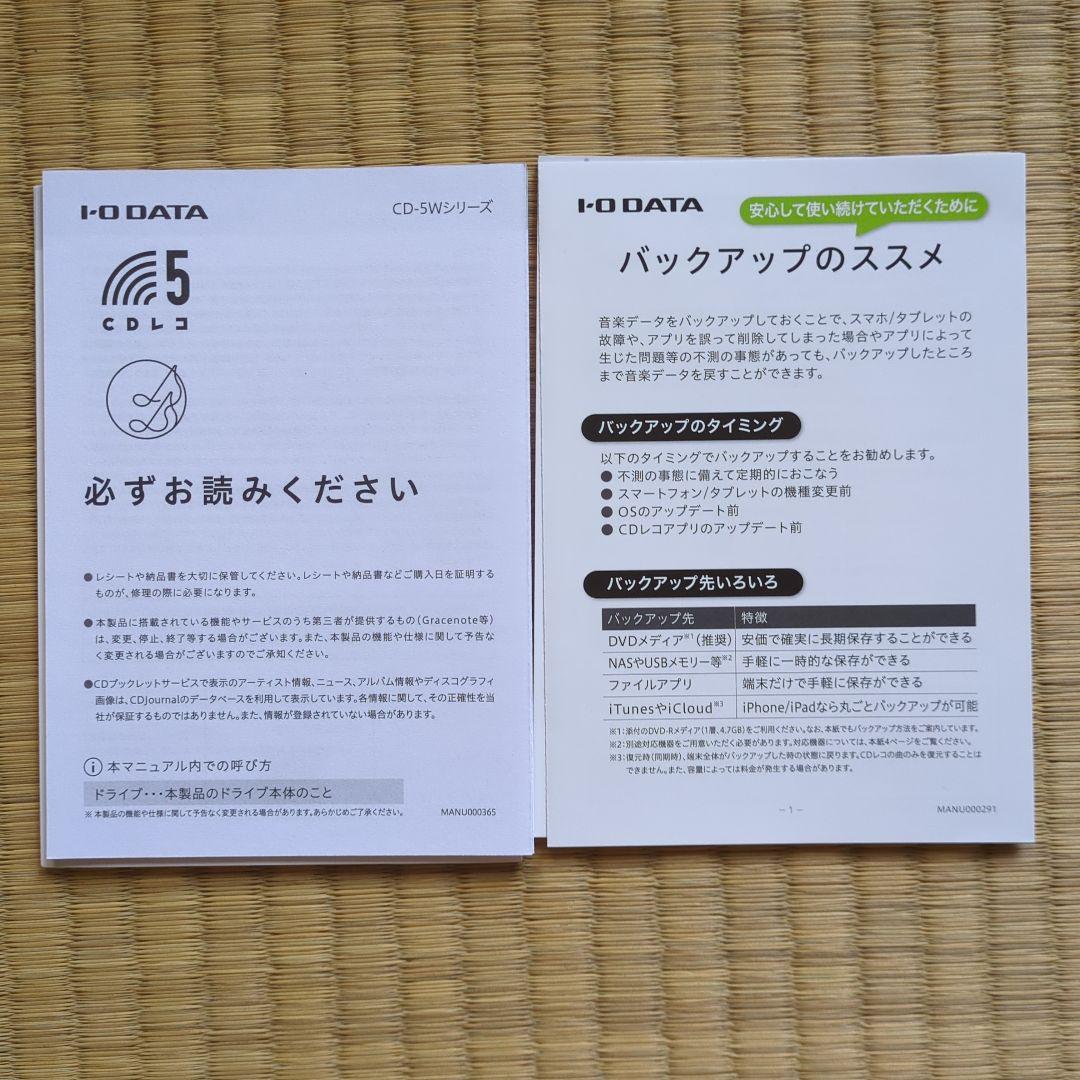 I-O DATA
CD-5Wシリーズ
5
CDレコ
必ずお読みください
● レシートや納品書を大切に保管してください。レシートや納品書などご購入日を証明する
ものが、修理の際に必要になります。
● 本製品に搭載されている機能やサービスのうち第三者が提供するもの（Gracenote等）
は、変更、停止、終了等する場合がございます。また、本製品の機能や仕様に関して予告な
く変更される場合がございますのでご承知ください。
●CDブックレットサービスで表示のアーティスト情報、ニュース、アルバム情報やディスコグラフィ
画像は、CDJournalのデータベースを利用して表示しています。各情報に関して、その正確性を当
社が保証するものではありません。また、情報が登録されていない場合があります。
i 本マニュアル内での呼び方
ドライブ・・・本製品のドライブ本体のこと
※ 本製品の機能や仕様に関して予告なく変更される場合があります。あらかじめご了承ください。
MANU000365
I-O DATA
安心して使い続けていただくために
バックアップのススメ
音楽データをバックアップしておくことで、スマホ/タブレットの
故障や、アプリを誤って削除してしまった場合やアプリによって
生じた問題等の不測の事態があっても、バックアップしたところ
まで音楽データを戻すことができます。
バックアップのタイミング
以下のタイミングでバックアップすることをお勧めします。
● 不測の事態に備えて定期的におこなう
● スマートフォン/タブレットの機種変更前
● OSのアップデート前
● CDレコアプリのアップデート前
バックアップ先いろいろ
バックアップ先 特徴
DVDメディア※1（推奨） 安価で確実に長期保存することができる
NASやUSBメモリー等※2 手軽に一時的な保存ができる
ファイルアプリ 端末だけで手軽に保存ができる
iTunesやiCloud※3 iPhone/iPadなら丸ごとバックアップが可能
※1：添付のDVD-Rメディア（1層、4.7GB）をご利用ください。なお、本紙でもバックアップ方法をご案内しています。
※2：別途対応機器をご用意いただく必要があります。対応機器については、本紙4ページをご覧ください。
※3：復元時（同期時）、端末全体がバックアップした時の状態に戻ります。CDレコの曲のみを復元することは
できません。また、容量によっては料金が発生する場合があります。
– 1 –
MANU000291